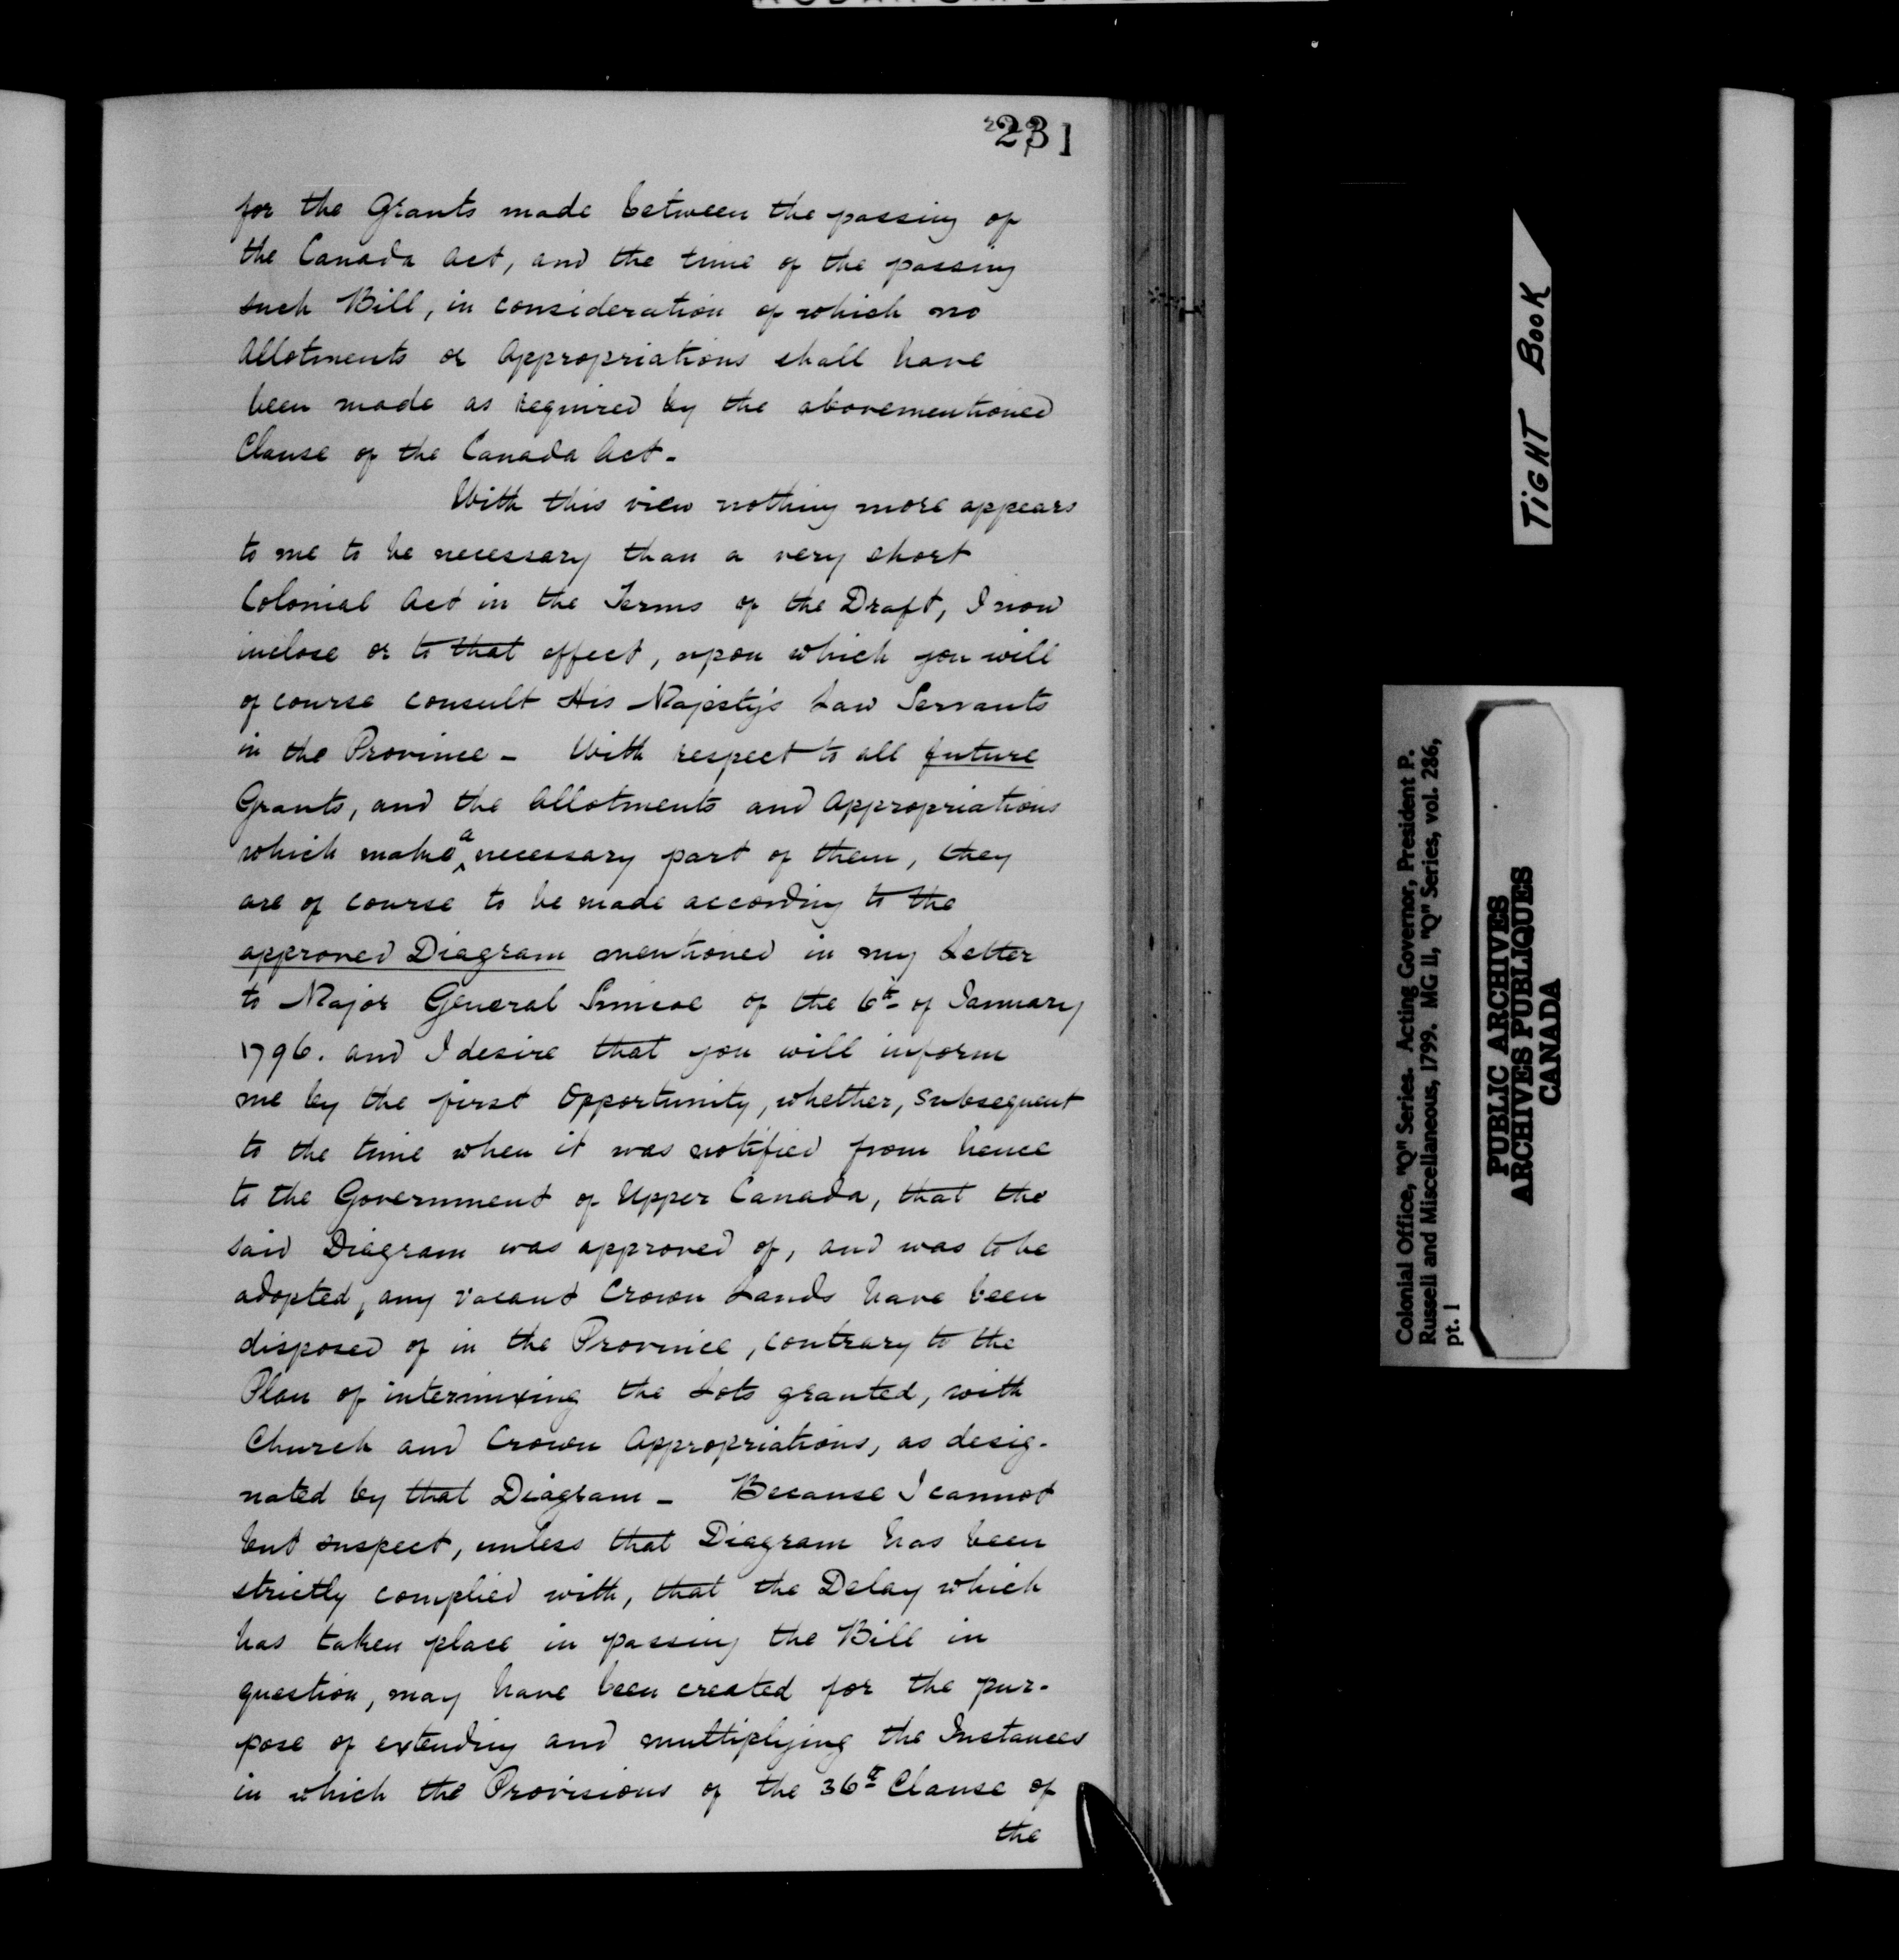 231
for the Grants made between the passing of
the Canada Act, and the time of the passing
such Bill, in consideration of which no
Allotments or Appropriations shall have
been made as required by the abovementioned
Clause of the Canada Act -
With this view nothing more appears
to me to be necessary than a very short
Colonial Act in the Terms of the Draft, I now
inclose or to that effect, upon which you will
of course consult His Majesty's Law Servants
in the Province - With respect to all future
Grants, and the Allotments and Appropriations
which make a necessary part of them, they
are of course to be made according to the
approved Diagram mentioned in my Letter
to Major General Simcoe of the 6th of January
1796. and I desire that you will inform
me by the first Opportunity, whether, subsequent
to the time when it was notified from hence
to the Government of Upper Canada, that the
said Diagram was approved of, and was to be
adopted, any vacant Crown Lands have been
disposed of in the Province, contrary to the
Plan of intermixing the Lots granted, with
Church and Crown Appropriations, as desig-
nated by that Diagram - Because I cannot
but suspect, unless that Diagram has been
strictly complied with, that the Delay which
has taken place in passing the Bill in
question, may have been created for the pur-
pose of extending and multiplying the Instances
in which the Provisions of the 36th Clause of
the
TIGHT BOOK
Colonial Office, "Q" Series. Acting Governor, President P.
Russell and Miscellaneous, 1799. MG 11, "Q" Series, vol. 286,
pt. 1
PUBLIC ARCHIVES
ARCHIVES PUBLIQUES
CANADA